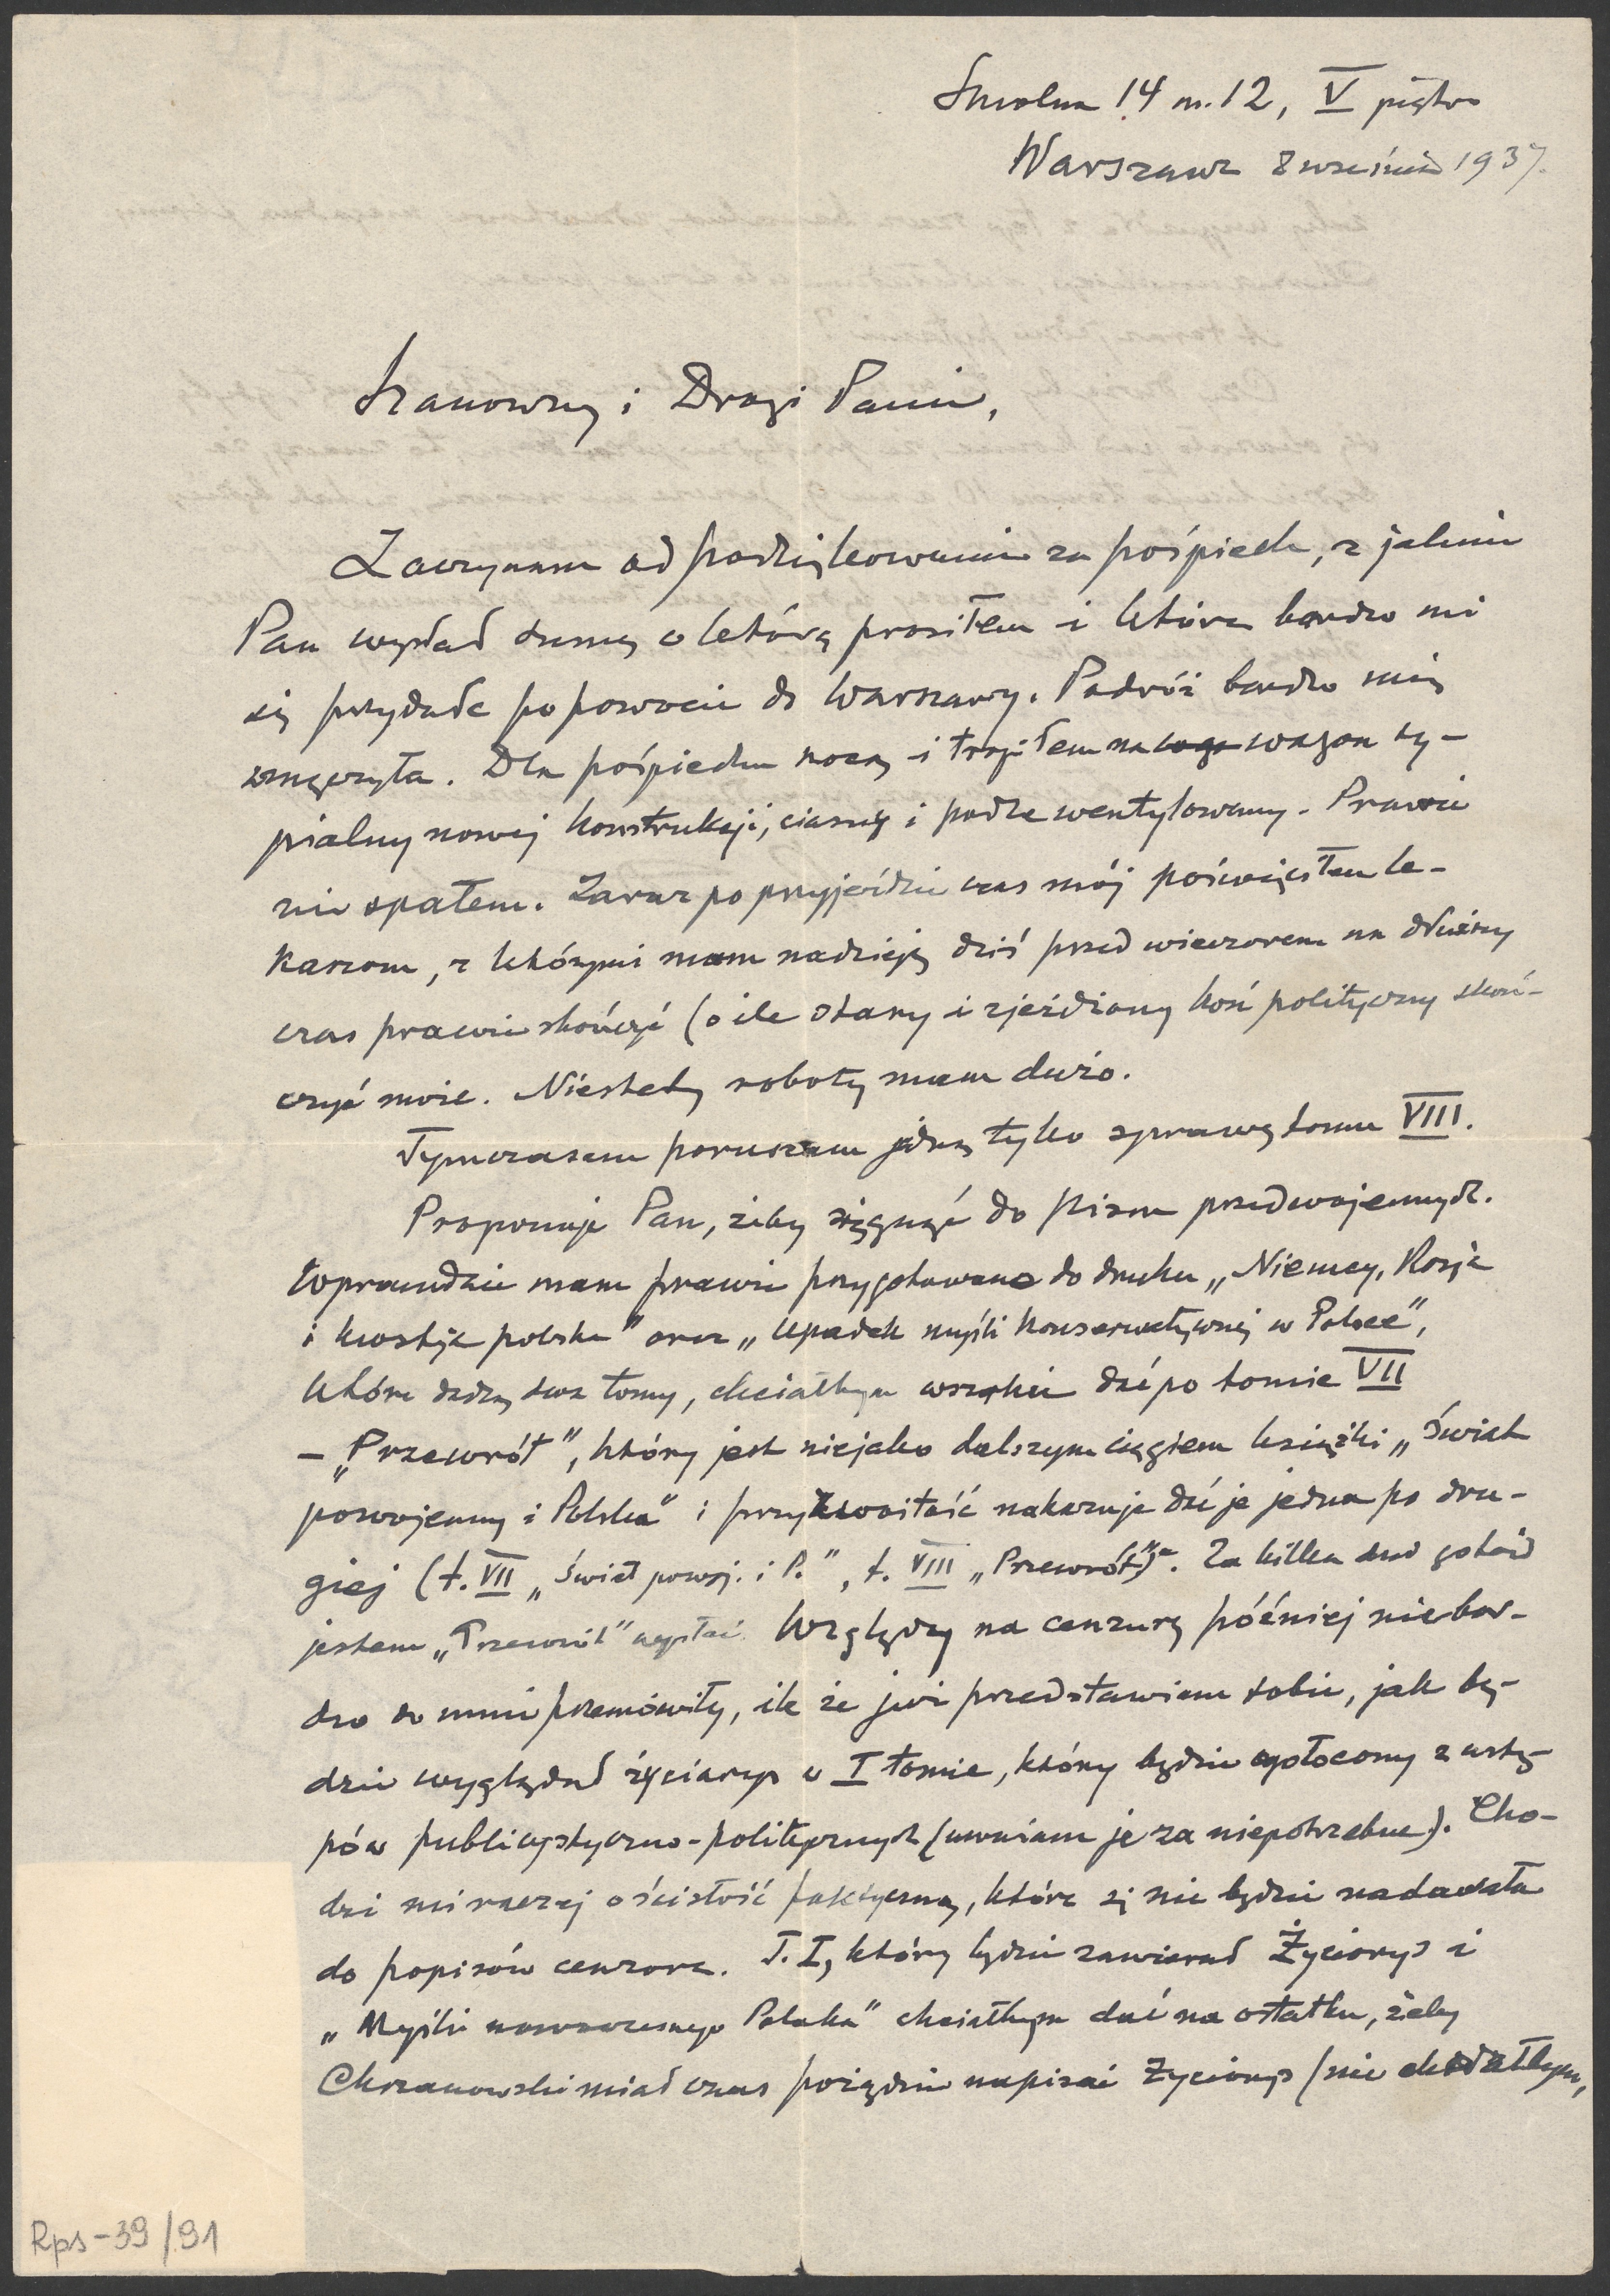 Smolna 14 m. 12, V piętro
Warszawa 8 września 1937.
Szanowny i Drogi Panie,
Zaczynam od podziękowania za pośpiech, z jakim
Pan wysłał sumę o którą prosiłem i która bardzo mi
się przydała po powrocie do Warszawy. Podróż bardzo mię
zmęczyła. Dla pośpiechu nocą i trafiłem na wagon sy-
pialny nowej konstrukcji, ciasny i podle wentylowany. Prawie
nie spałem. Zaraz po przyjeździe czas mój poświęciłem le-
karzom, z którymi mam nadzieję dziś przed wieczorem na dłuższy
czas prawie skończyć (o ile stary i zjeżdżony koń polityczny skoń-
czyć może. Niestety roboty mam dużo.
Tymczasem poruszam jedną tylko sprawę tomu VIII.
Proponuje Pan, żeby sięgnąć do pism przedwojennych.
Wprawdzie mam prawie przygotowane do druku „Niemcy, Rosja
i kwestja polska" oraz „Upadek myśli konserwatywnej w Polsce",
które dadzą dwa tomy, chciałbym wszakże dać po tomie VII
– „Przewrót", który jest niejako dalszym ciągiem książki „Świat
powojenny i Polska" i przyzwoitość nakazuje dać je jedna po dru-
giej (t. VII „Świat powoj. i P.", t. VIII „Przewrót"). Za kilka dni gotów
jestem „Przewrót" wysłać. Względy na cenzurę później nie bar-
dzo do mnie przemówiły, ile że już przedstawiam sobie, jak bę-
dzie wyglądał życiorys w I tomie, który będzie ogołocony z ustę-
pów publicystyczno-politycznych (uważam je za niepotrzebne). Cho-
dzi mi raczej o ścisłość faktyczną, która się nie będzie nadawała
do popisów cenzora. T. I, który będzie zawierał Życiorys i
„Myśli nowoczesnego Polaka" chciałbym dać na ostatku, żeby
Chrzanowski miał czas porządnie napisać Życiorys (nie chciałbym,
Rps-39/91